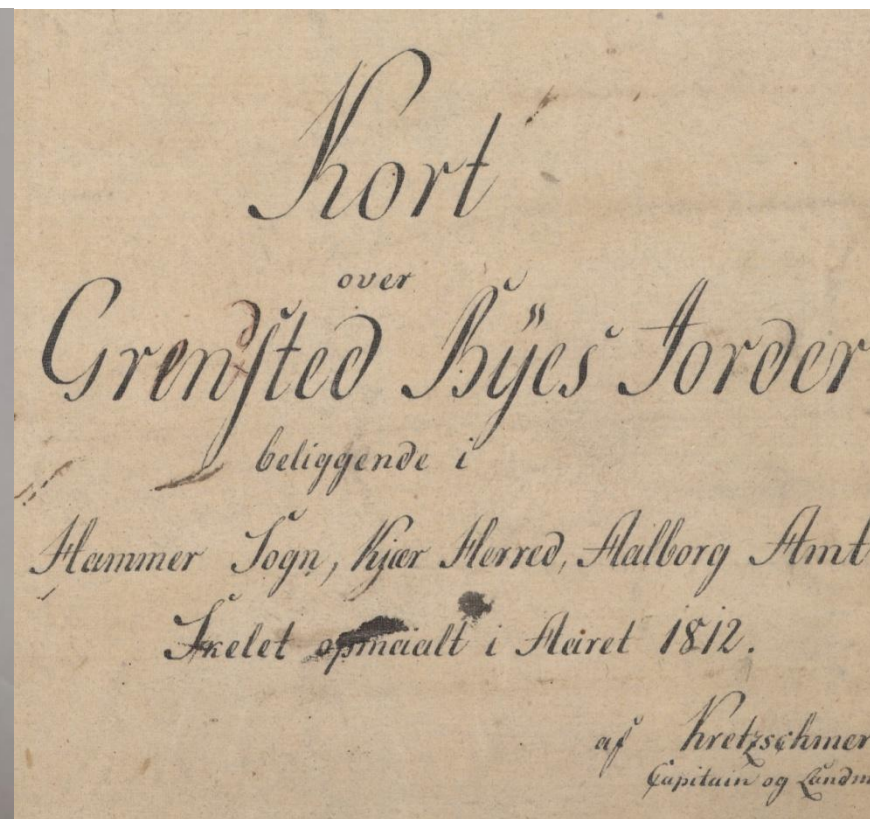 Kort
over
Grendsted Bÿes Jorder
beliggende i
Hammer Sogn, Kjær Herred, Aalborg Amt
Skelet opmaalt i Aaret 1812.
af Kretzschmer
Capitain og Landm